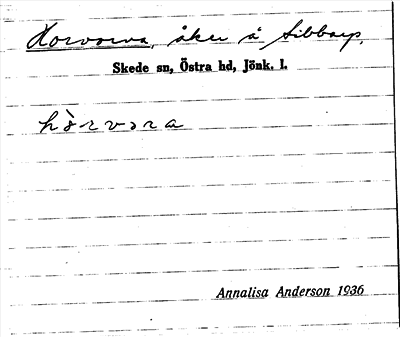 Horvorva, åker å Sibbarp.
Skede sn, Östra hd, Jönk. l.
hòrvora
Annalisa Anderson 1936